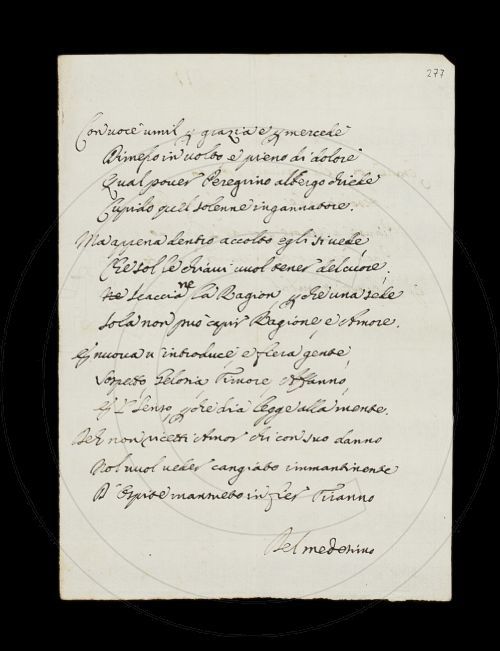 277
Con voce umil p grazia e p mercede
Dimesso in volto e pieno di dolore
Qual pover Peregrino albergo chiede
Cupido quel solenne ingannatore.
Ma appena dentro accolto egli si vede
Che sol le chiavi vuol tener del cuore
ne scaccia la Ragion p che una sede
sola non può capir Ragione e Amore.
nuova v'introduce e fiera gente
Sospetto, Gelosia Timore, Affanno,
Senso, p che dia legge alla mente.
Deh non ricetti Amor chi con suo danno
Nol vuol veder cangiato immantinente
D'Ospite mansueto in fier Tiranno
Del medesimo